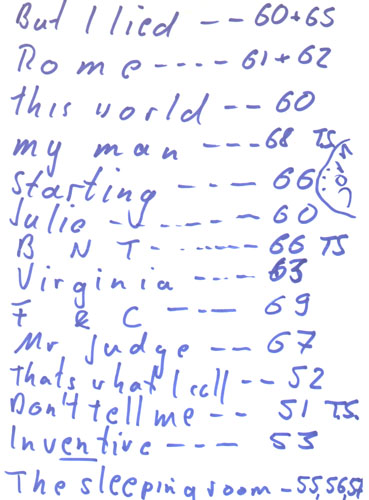 But I lied -- 60+65
Rome ---- 61+62
this world -- 60
my man --- 68 TS
Starting --- 66
Julie ------ 60
B N T ------ 66 TS
Virginia ---- 63
F & C --- 69
Mr Judge -- 67
Thats what I call -- 52
Don't tell me -- 51 TS.
Inventive --- 53
The sleeping room - 55,56,57